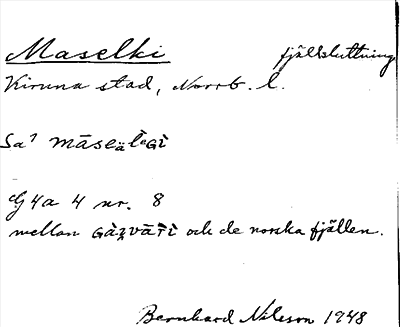 Maselki fjällsluttning
Kiruna stad, Norrb. l.
mellan och de norska fjällen.
4 nr. 8
Bernhard Nilsson 1948